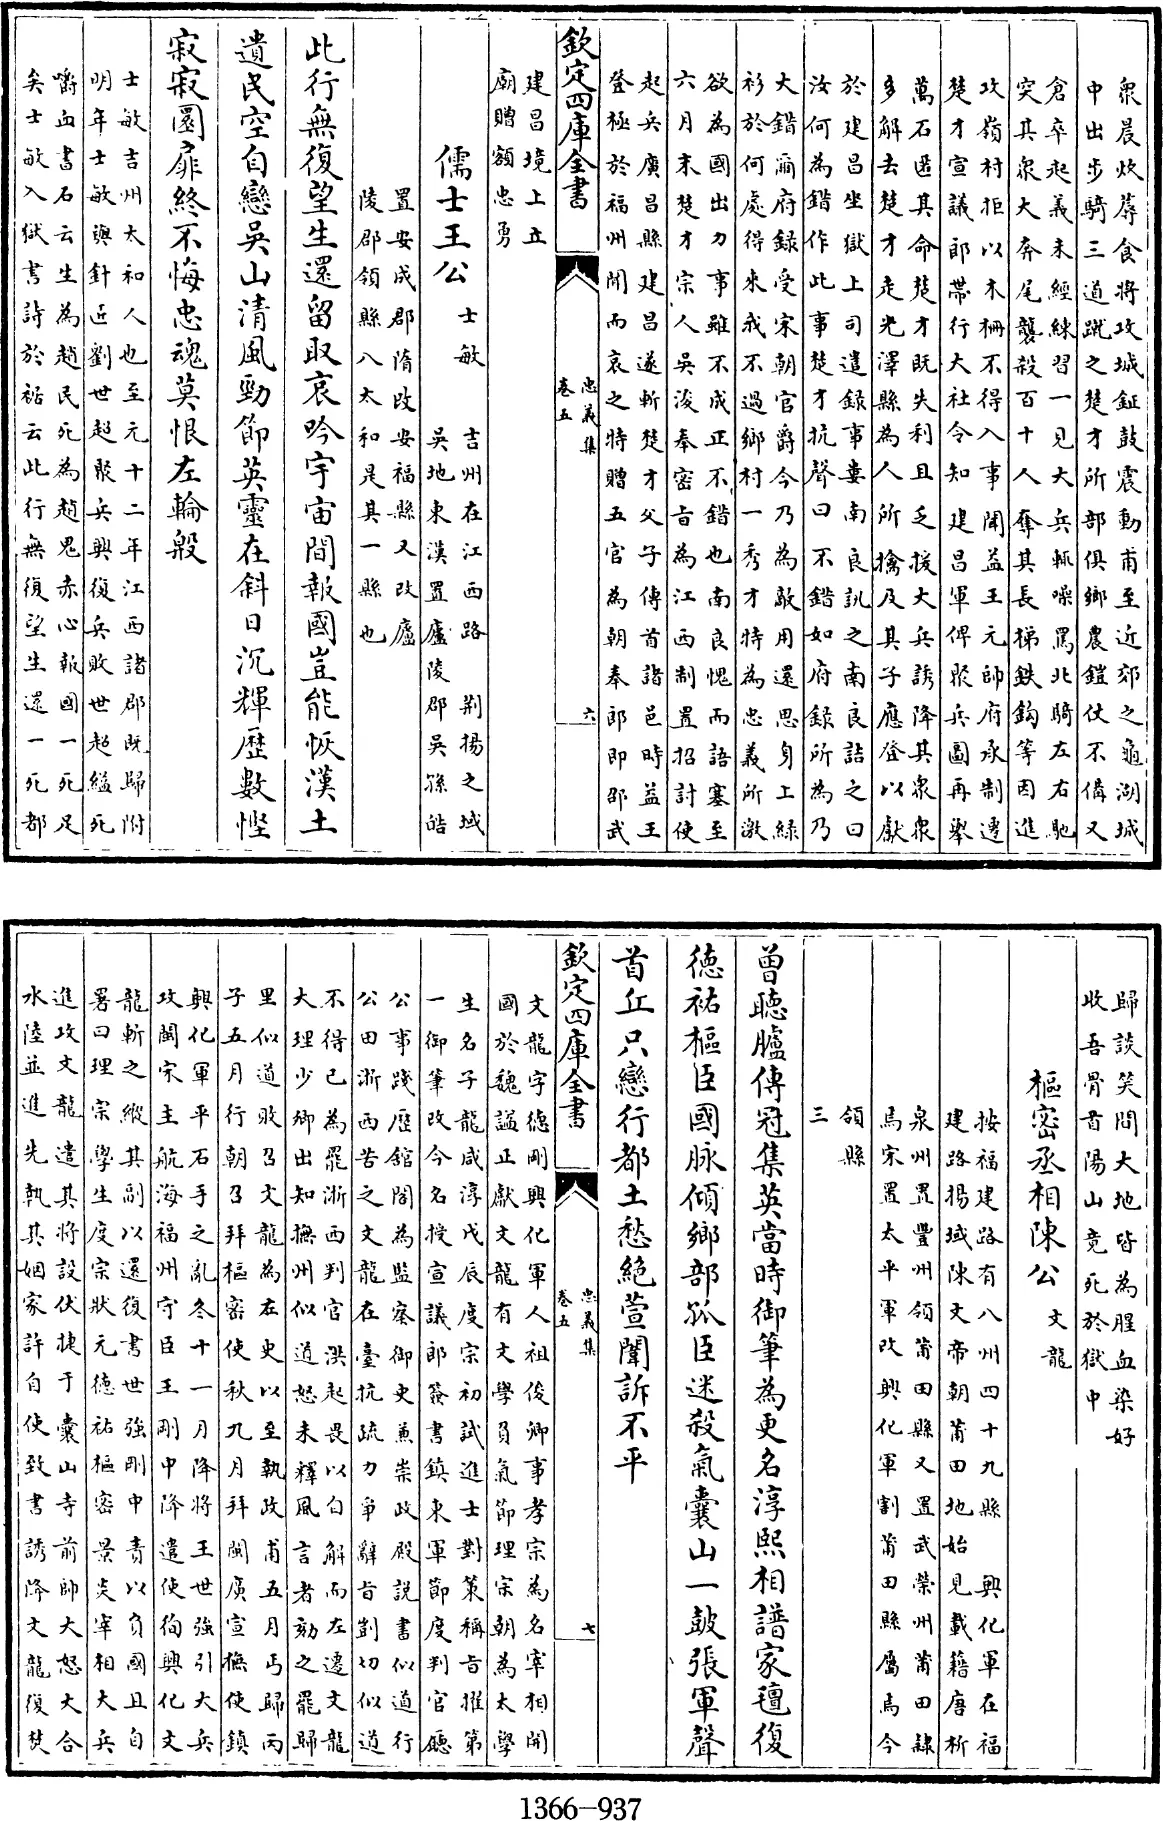 衆晨炊蓐食將攻城鉦鼓震動甫至近郊之龜湖城
中出步騎三道蹴之楚才所部俱鄉農鎧仗不備又
倉卒起義未經練習一見大兵輒噪罵北騎左右馳
突其衆大奔尾襲殺百十人奪其長梯鉄鈎等因進
攻嶺村拒以木柵不得入事聞益王元帥府承制遷
楚才宣議郎帶行大社令知建昌軍俾聚兵圖再舉
萬石匿其命楚才既失利且乏援大兵誘降其衆衆
多解去楚才走光澤縣為人所擒及其子應登以獻
於建昌坐獄上司遣錄事婁南良訊之南良詰之曰
汝何為錯作此事楚才抗聲曰不錯如府錄所為乃
大錯爾府錄受宋朝官爵今乃為敵用還思身上綠
衫於何處得來我不過鄉村一秀才特為忠義所激
欲為國出力事雖不成正不錯也南良愧而語塞至
六月末楚才宗人吳浚奉密㫖為江西制置招討使
起兵廣昌縣建昌遂斬楚才父子傳首諸邑時益王
登極於福州聞而哀之特贈五官為朝奉郎即邵武
欽定四庫全書
忠義集
卷五
六
建昌境上立
廟贈額忠勇
儒士王公
士敏
吉州在江西路
荆揚之域
吳地東漢置廬陵郡吳孫皓
置安成郡隋改安福縣又改廬
陵郡領縣八太和是其一縣也
此行無復望生還留取哀吟宇宙間報國豈能恢漢土
遺民空自戀吳山清風勁節英靈在斜日沉輝歴數慳
寂寂圜扉終不悔忠魂莫恨左輪般
士敏吉州太和人也至元十二年江西諸郡既歸附
明年士敏與針匠劉世超聚兵興復兵敗世超縊死
嚙血書石云生為趙民死為趙鬼赤心報國一死足
矣士敏入獄書詩於裾云此行無復望生還一死都
歸談笑間大地皆為腥血染好
收吾骨首陽山竟死於獄中
樞密丞相陳公
文龍
按福建路有八州四十九縣
興化軍在福
建路揚域陳文帝朝莆田地始見載籍唐析
泉州置豐州領莆田縣又置武榮州莆田隷
焉宋置太平軍改興化軍割莆田縣屬焉今
領縣
三
曽聽臚傳冠集英當時御筆為更名淳熙相譜家氊復
徳祐樞臣國脉傾鄉部孤臣迷殺氣囊山一皷張軍聲
首丘只戀行都土愁絶萱闈訴不平
欽定四庫全書
忠義集
卷五
七
文龍字徳剛興化軍人祖俊卿事孝宗為名宰相開
國於魏諡正獻文龍有文學負氣節理宗朝為太學
生名子龍咸淳戊辰度宗初試進士對策稱㫖擢第
一御筆改今名授宣議郎簽書鎮東軍節度判官廳
公事踐歴舘閣為監察御史兼崇政殿説書似道行
公田浙西苦之文龍在臺抗疏力爭辭㫖剴切似道
不得已為罷浙西判官洪起畏以自解而左遷文龍
大理少卿出知撫州似道怒未釋風言者劾之罷歸
里似道敗召文龍為左史以至執政甫五月丐歸丙
子五月行朝召拜樞密使秋九月拜閩廣宣撫使鎮
興化軍平石手之亂冬十一月降將王世強引大兵
攻閩宋主航海福州守臣王剛中降遣使徇興化文
龍斬之縱其副以還復書世強剛中責以負國且自
署曰理宗學生度宗狀元徳祐樞密景炎宰相大兵
進攻文龍遣其將設伏捷于囊山寺前帥大怒大合
水陸並進先執其姻家許自使致書誘降文龍復焚
1366-937